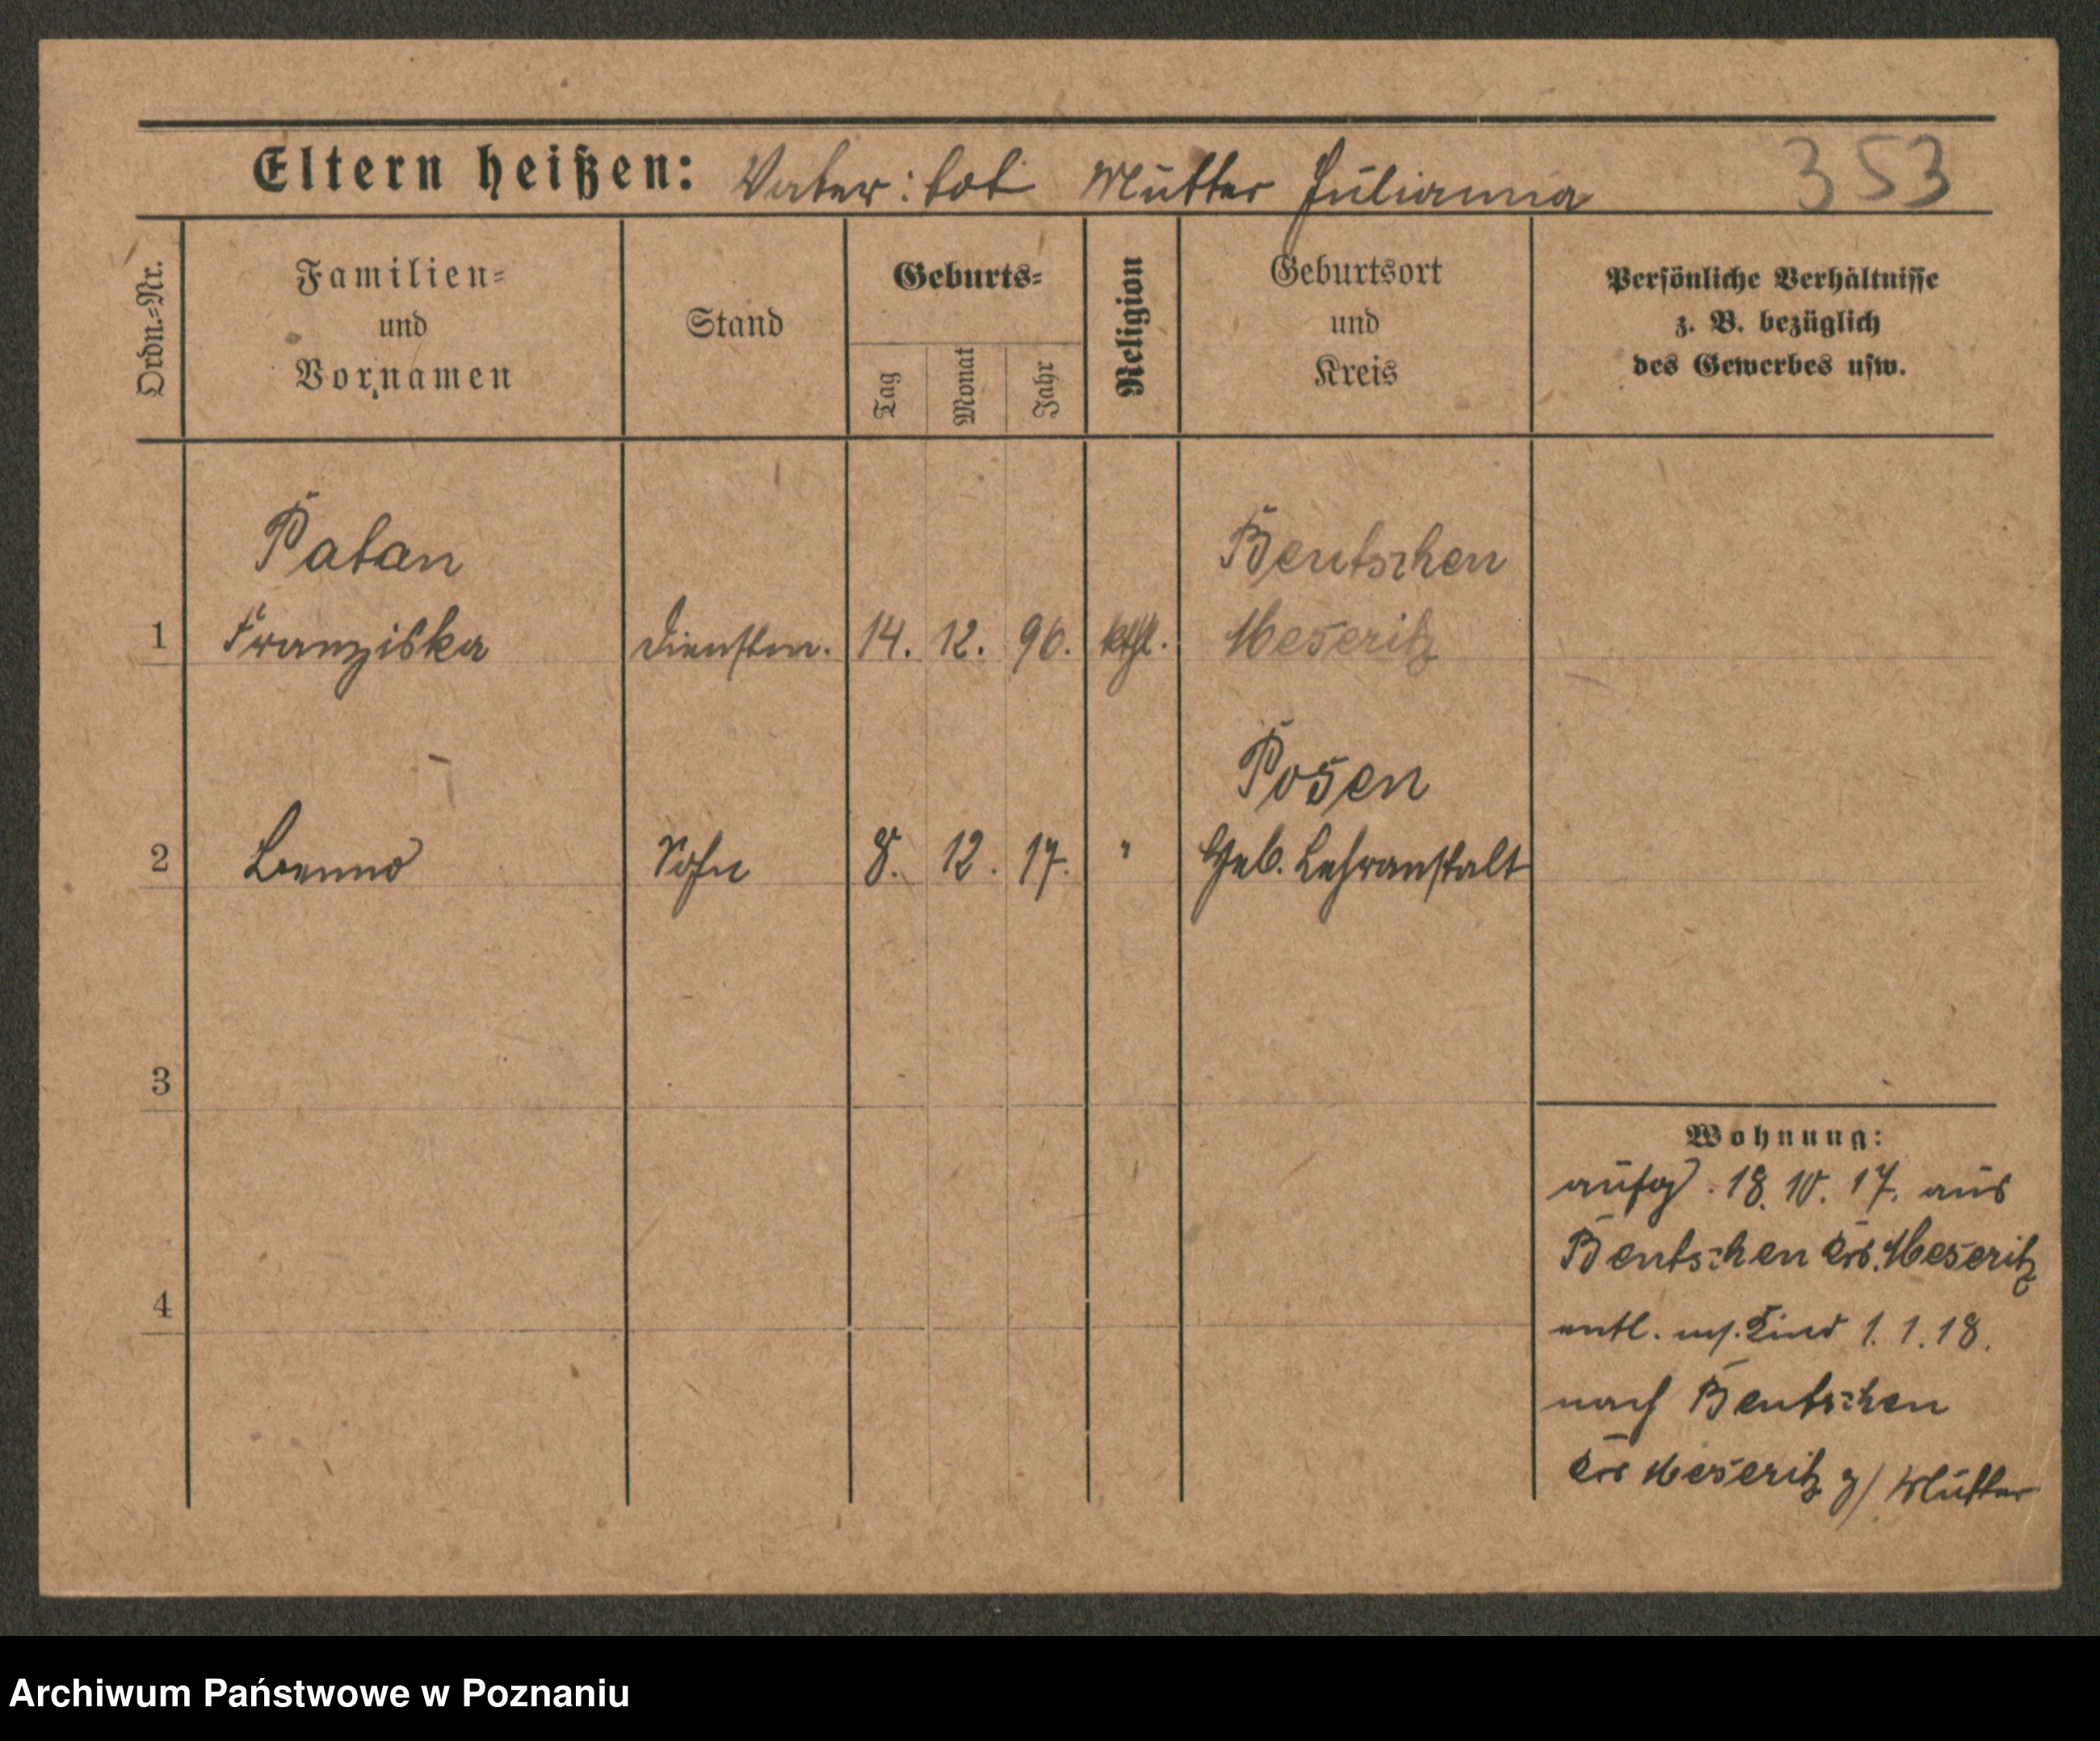 Eltern heißen: Vater: tot Mutter Julianna 353
Ordn.-Nr.
Familien-
und
Vornamen
Stand
Geburts-
Tag
Monat
Jahr
Religion
Geburtsort
und
Kreis
Persönliche Verhältnisse
z. B. bezüglich
des Gewerbes usw.
Patan Bentschen
1 Franziska Dienstm. 14. 12. 96. kthl. Meseritz
Posen
2 Benno Sohn 8. 12. 17. " Heb. Lehranstalt
3
4
Wohnung:
aufg. 18. 10. 17. aus
Bentschen Krs. Meseritz
entl. m. Kind 1. 1. 18.
nach Bentschen
Krs Meseritz z/ Mutter
Archiwum Państwowe w Poznaniu